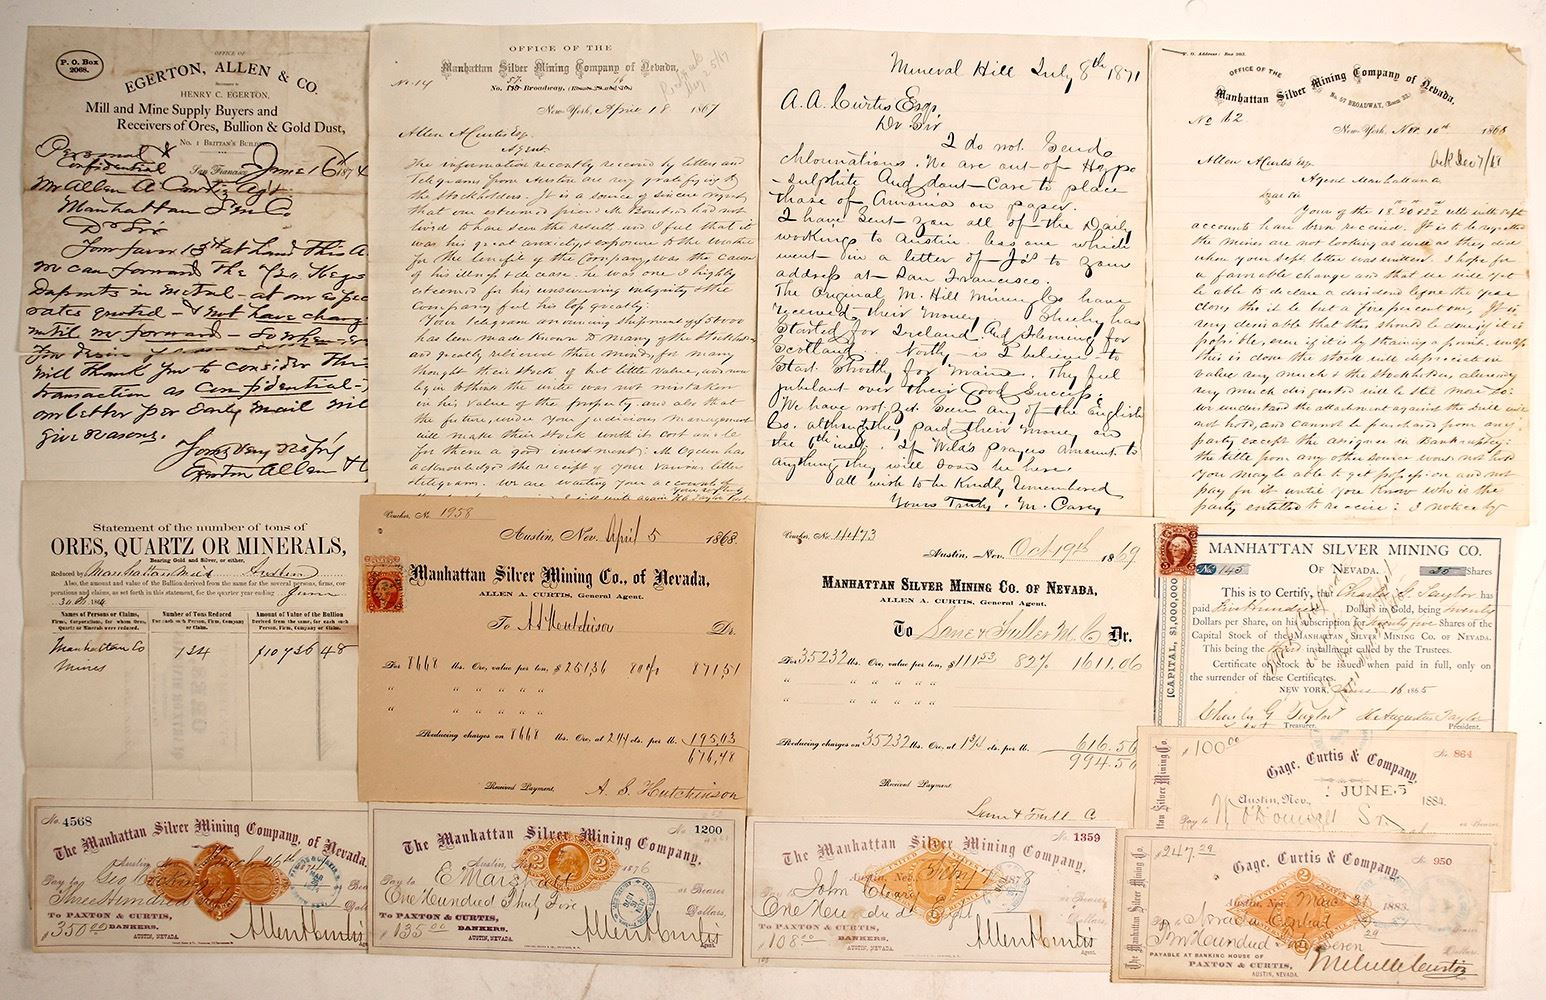 P. O. Box
2068.
OFFICE OF
EGERTON, ALLEN & CO.
HENRY C. EGERTON,
Mill and Mine Supply Buyers and
Receivers of Ores, Bullion & Gold Dust,
No. 1 BRITTAN'S
Personal &
Confidential
San Francisco, June 16th 1874
Mr Allen A Curtis Agt
Manhattan S M Co
Dr Sir
Your favr 13th at hand This
we can forward The
Deposits in metal - at our
rates quoted - & not have
until we forward - So when
You desire
will thank you to consider This
transaction as confidential -
our letter per Early mail will
give reasons.
Yours Very Resp'y
Egerton Allen &
OFFICE OF THE
Manhattan Silver Mining Company of Nevada,
No. 14
No. Broadway,
New York, April 18 1867
Allen A Curtis Esq.
Agent
The information recently received by letters and
Telegrams from Austin are very gratifying to
the stockholders. It is a source of sincere regret
that our esteemed friend Mr had not
lived to have seen the result and I feel that it
was his great anxiety & exposure to the weather
for the benefit of the Company, was the cause
of his illness & decease. he was one I highly
esteemed for his unswerving integrity & the
Company feel his loss greatly.
Your Telegram announcing shipment of
has been made known to many of the stockholders
and greatly relieved their minds, for many
thought their stock of but little value, and now
begin to think the writer was not mistaken
in his value of the property, and also that
the future, under your judicious management
will make their stock worth its cost and be
for them a good investment. Mr Ogden has
acknowledged the receipt of your various letters
& telegrams. We are waiting your accounts of
Mineral Hill July 8th 1871
A. A. Curtis Esq
Dr Sir
I do not Send
Chlorinations. We are out of Hypo
-sulphite And dont Care to place
those of Amonia on paper.
I have Sent you all of the Daily
workings to Austin. less one which
went in a letter of J's to your
address at San Francisco.
The Original M. Hill Mining Co have
received their Money. Sheehy has
Started for Ireland And Fleming for
Scotland. North is I believe to
Start Shortly for Maine. They feel
jubilant over their Good Success.
We have not yet Seen any of the English
Co. although they paid their Money on
the 6th inst. If Wild's prayers Amount to
anything they will Soon be here.
All wish to be Kindly Remembered
Yours Truly. M. Carey
P. O. Address: Box
OFFICE OF THE
Manhattan Silver Mining Company of Nevada,
No. 57 BROADWAY, (Room 23.)
No 62
New York, Nov. 10th 186
Allen A Curtis Esq.
Agent Manhattan
Dear Sir
Yours of the 18. 20 & 22 ulto with Sept
accounts have been received. It is to be regretted
the mines are not looking as well as they did
when your Sept letter was written. I hope for
a favorable change and that we will yet
be able to declare a dividend before the year
closes, tho it be but a five percent one. It is
very desirable that this should be done if it is
possible, even if it is by straining a point. unless
this is done the stock will depreciate in
value very much & the stockholders, already
very much disgusted will be still more so.
we understand the attachment against the mill will
not hold, and cannot be purchased from any
party except the assignee in Bankruptcy:
the title from any other source would not hold
you may be able to get possession and not
pay for it until you know who is the
party entitled to receive: I notice by
Statement of the number of tons of
ORES, QUARTZ OR MINERALS,
Bearing Gold and Silver, or either,
Reduced by Manhattan Mill Austin
Also, the amount and value of the Bullion derived from the same, for several persons, firms, cor-
porations and claims, as set forth in this statement, for the quarter year ending June
30th 18
Names of Persons or Claims, Firms, Corporations, for whom Ores, Quartz or Minerals were reduced.
Number of Tons Reduced For each such Person, Firm, Company or Claim.
Amount of Value of the Bullion Derived from the same, for each such Person, Firm, Company or Claim.
Manhattan Co
Mines
134
$10736 48
Voucher, No. 1958
Austin, Nev. April 5 1868.
Manhattan Silver Mining Co., of Nevada,
ALLEN A. CURTIS, General Agent.
To A S Hutchinson Dr.
For 8668 lbs. Ore, value per ton, $ 251,36 80% 871,51
" " " " "
" " " " "
Reducing charges on 8668 lbs. Ore, at 2¼ cts. per lb. 195,03
676,48
Received Payment,
A. S. Hutchinson
Voucher, No. 4473
Austin, Nev. Oct 19th 1869
MANHATTAN SILVER MINING CO. OF NEVADA,
ALLEN A. CURTIS, General Agent.
To Lane & Fuller M. C Dr.
For 35232 lbs. Ore, value per ton, $111 53 82% 1611.06
" " " " "
" " " " "
Reducing charges on 35232 lbs. Ore, at 1¾ cts. per lb. 616.56
994.50
Received Payment
Lane & Full Co
MANHATTAN SILVER MINING CO.
OF NEVADA.
No 145
25 Shares
(CAPITAL, $1,000,000
This is to Certify, that Charles G. Taylor has
paid Five Hundred Dollars in Gold, being twenty
Dollars per Share, on his subscription for Twenty five Shares of the
Capital Stock of the MANHATTAN SILVER MINING CO. OF NEVADA.
This being the third installment called by the Trustees.
Certificate of Stock to be issued when paid in full, only on
the surrender of these Certificates.
NEW YORK, 16 1865
Charles G Taylor
Treasurer.
H Augustus Taylor
President.
$100 00
Gage, Curtis & Company,
No. 864
Silver Mining Co.
Austin, Nev., JUNE 5 1884.
Pay to O'Donnell or Bearer
No. 4568
The Manhattan Silver Mining Company, of Nevada.
Austin
March 26th
Pay to Geo Hopkins
Three Hundred
To PAXTON & CURTIS,
$350 00 BANKERS,
AUSTIN, NEVADA.
Allen A Curtis
No. 1200
The Manhattan Silver Mining Company,
Austin, 1876
Pay to E Marshall or Bearer
One Hundred Thirty Five Dollars,
To PAXTON & CURTIS,
$135 00 BANKERS,
AUSTIN, NEVADA.
Allen A Curtis
Agent.
No. 1359
The Manhattan Silver Mining Company,
Austin, Nev. 17 1878
Pay to John Cleary or Bearer
One Hundred & Eight Dollars,
To PAXTON & CURTIS,
$108 00 BANKERS,
AUSTIN, NEVADA.
Allen A Curtis
Agent.
$247.29
Gage, Curtis & Company,
No. 950
The Manhattan Silver Mining Co.
Austin, Nev. Mar 31 1883.
Pay to Nevada Central
Two Hundred Seven
Dollars
PAYABLE AT BANKING HOUSE OF
PAXTON & CURTIS,
AUSTIN, NEVADA.
Melville Curtis